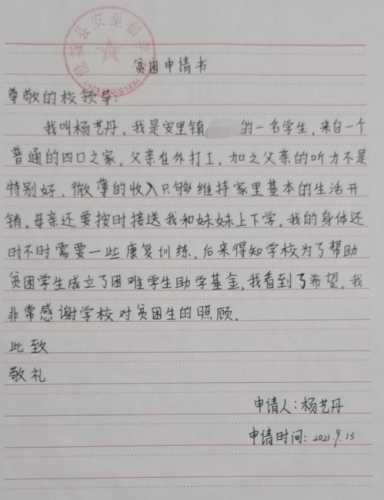 贫困申请书
尊敬的校领导:
我叫杨艺丹,我是安里镇 的一名学生,来自一个
普通的四口之家,父亲在外打工,加之父亲的听力不是
特别好,微薄的收入只够维持家里基本的生活开
销。母亲还要按时接送我和妹妹上下学,我的身体还
时不时需要一些康复训练。后来得知学校为了帮助
贫困学生成立了困难学生助学基金,我看到了希望,我
非常感谢学校对贫困生的照顾。
此致
敬礼
申请人:杨艺丹
申请时间:2021.9.13